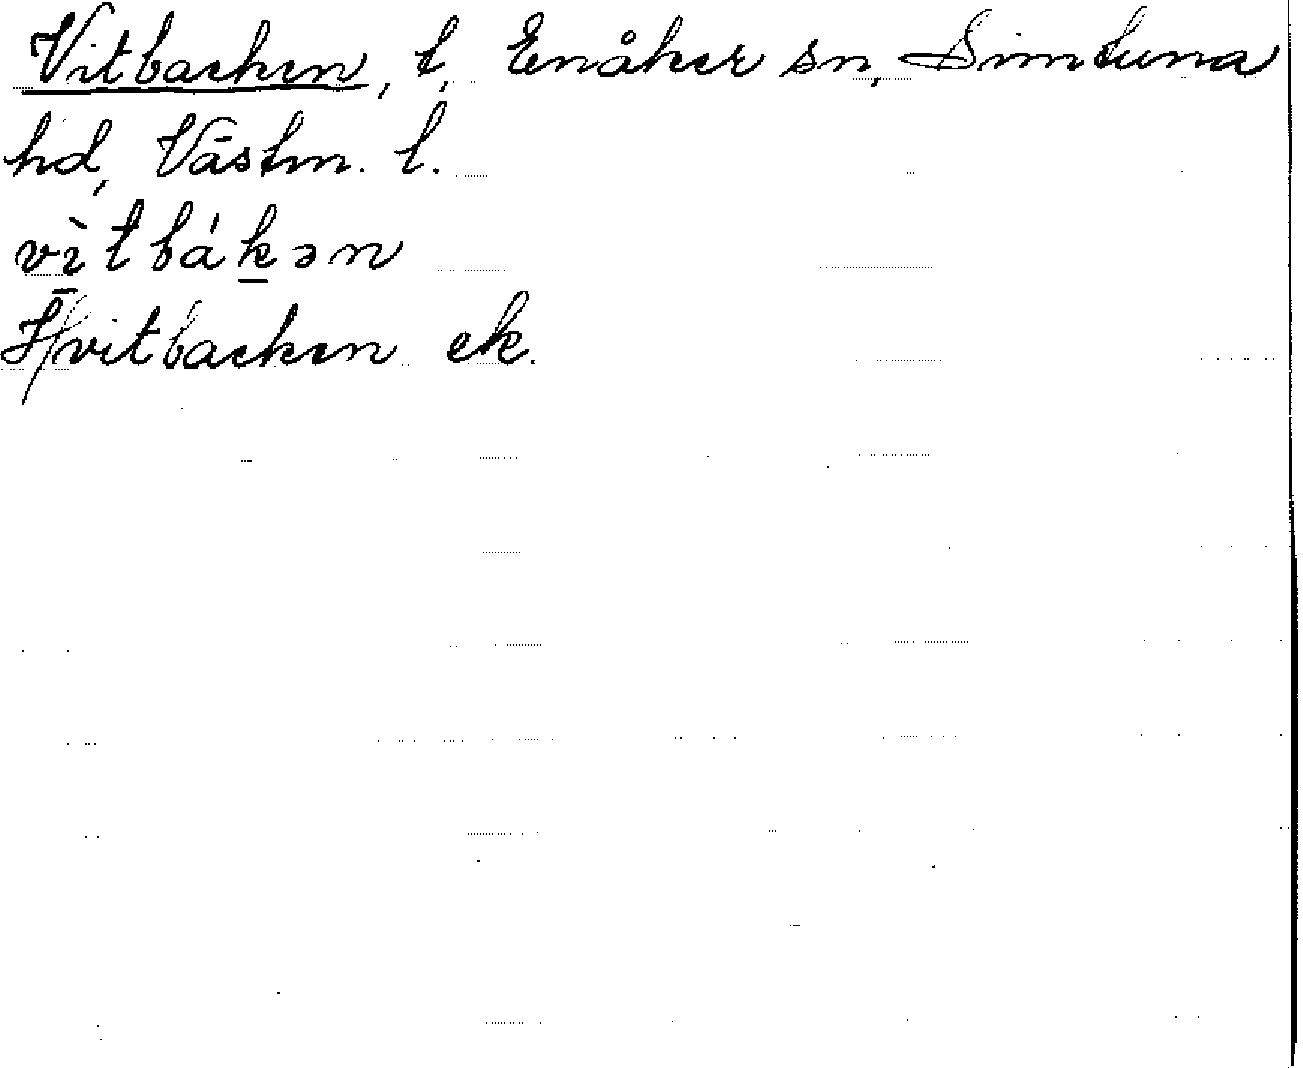 Vitbacken, t, Enåker sn, Simtuna
hd, Västm. l.
vı̱̀tbák̲ən
Hvitbacken ek.